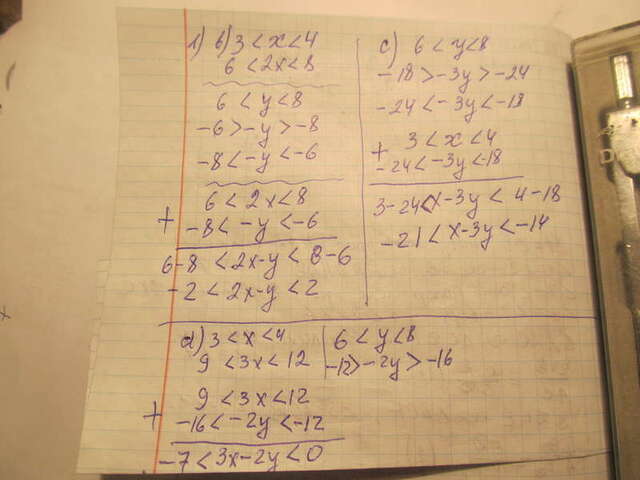 1) b) 3 < x < 4
6 < 2x < 8
6 < y < 8
-6 > -y > -8
-8 < -y < -6
6 < 2x < 8
+ -8 < -y < -6
6-8 < 2x-y < 8-6
-2 < 2x-y < 2
c) 6 < y < 8
-18 > -3y > -24
-24 < -3y < -18
3 < x < 4
+ -24 < -3y < -18
3-24 < x-3y < 4-18
-21 < x-3y < -14
d) 3 < x < 4
9 < 3x < 12
6 < y < 8
-12 > -2y > -16
9 < 3x < 12
+ -16 < -2y < -12
-7 < 3x-2y < 0